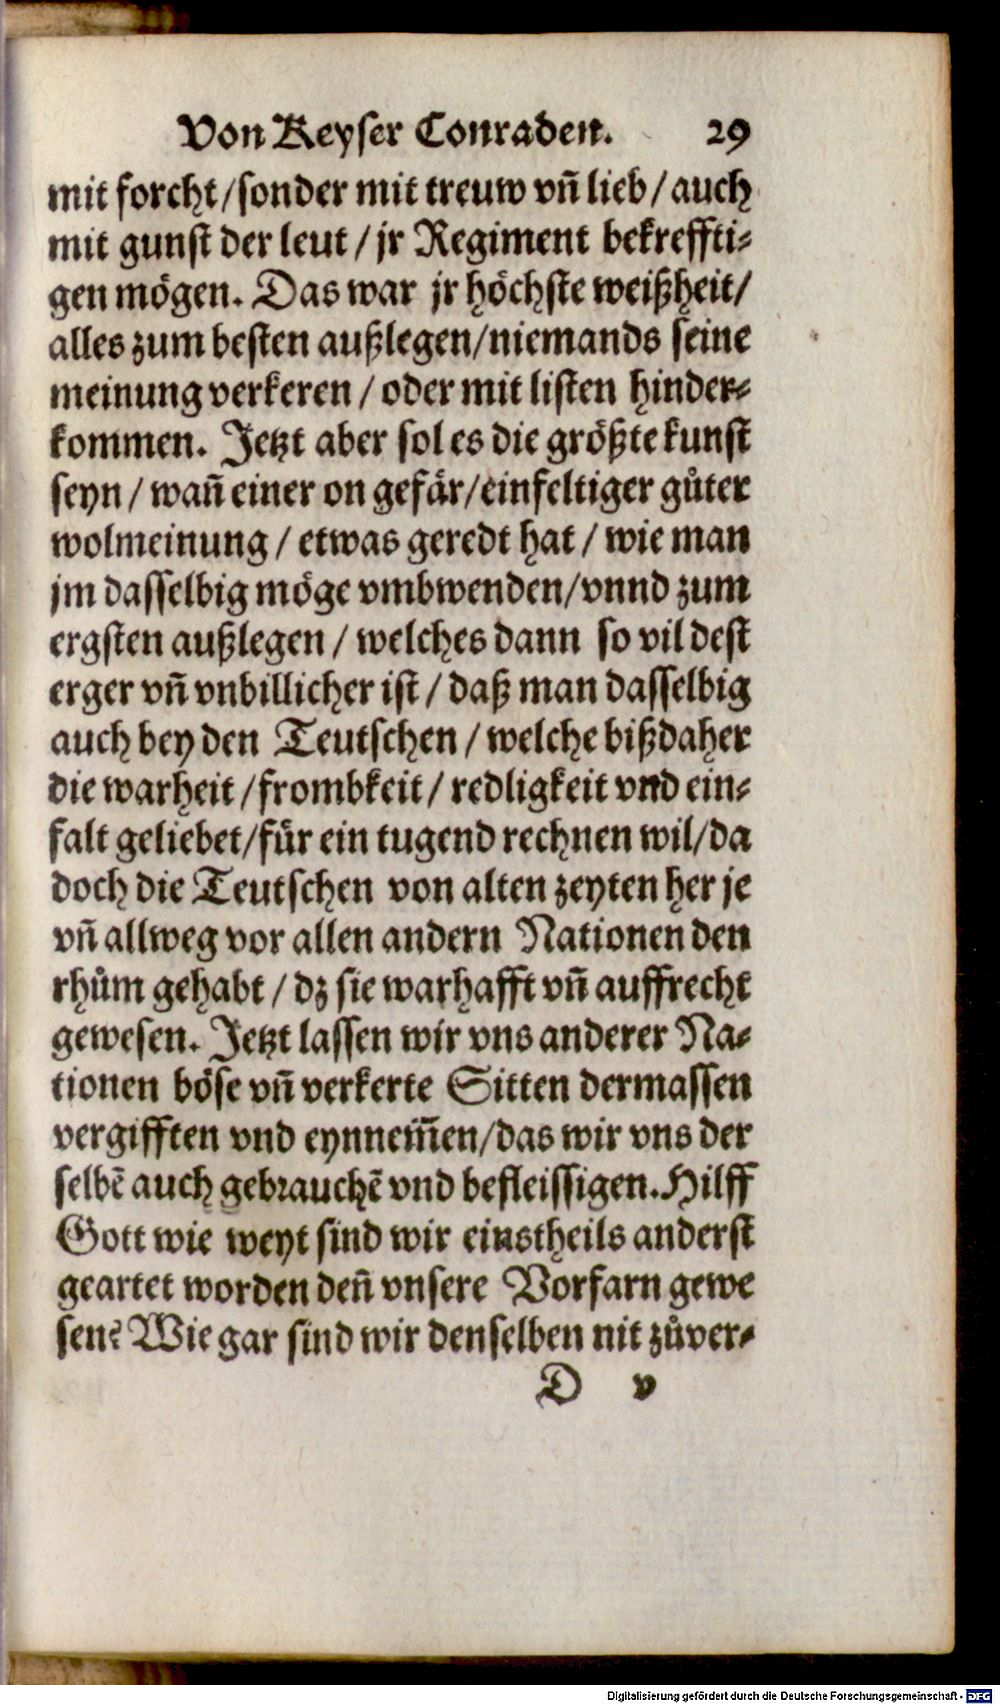 Von Keyser Conraden. 29
mit forcht/sonder mit treuw vñ lieb/auch
mit gunst der leut/jr Regiment bekreffti⸗
gen mögen. Das war jr höchste weißheit/
alles zum besten außlegen/niemands seine
meinung verkeren/oder mit listen hinder⸗
kommen. Jetzt aber sol es die größte kunst
seyn/wañ einer on gefär/einfeltiger gůter
wolmeinung/etwas geredt hat/wie man
jm dasselbig möge vmbwenden/vnnd zum
ergsten außlegen/welches dann so vil dest
erger vñ vnbillicher ist/daß man dasselbig
auch bey den Teutschen/welche bißdaher
die warheit/frombkeit/redligkeit vnd ein⸗
falt geliebet/für ein tugend rechnen wil/da
doch die Teutschen von alten zeyten her je
vñ allweg vor allen andern Nationen den
rhům gehabt/dz sie warhafft vñ auffrecht
gewesen. Jetzt lassen wir vns anderer Na⸗
tionen böse vñ verkerte Sitten dermassen
vergifften vnd eynnem̃en/das wir vns der
selbẽ auch gebrauchẽ vnd befleissigen. Hilff
Gott wie weyt sind wir einstheils anderst
geartet worden deñ vnsere Vorfarn gewe
sen? Wie gar sind wir denselben nit zůver⸗
D v
Digitalisierung gefördert durch die Deutsche Forschungsgemeinschaft - DFG